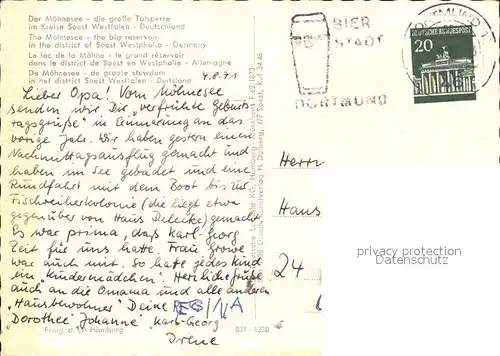 Der Möhnesee - die große Talsperre
im Kreise Soest Westfalen - Deutschland
The Möhnesee - the big reservoir
in the district of Soest Westphalia - Germany
Le lac de la Möhne - le grand réservoir
dans le district de Soest en Westphalie - Allemagne
De Möhnesee - de groote stuwdam
in het district Soest Westfalen - Duitsland
4.8.71
Lieber Opa! Vom Möhnesee
senden wir Dir "verfrühte Geburts-
tagsgrüße" in Erinnerung an das
vorige Jahr. Wir haben gestern einen
Nachmittagsausflug gemacht und
haben im See gebadet und eine
Rundfahrt mit dem Boot bis zur
Fischreiherkolonie (die liegt etwa
gegenüber von Haus Delecke) gemacht.
Es war prima, daß Karl-Georg
Zeit für uns hatte. Frau
war auch mit. So hatte jedes Kind
ein "Kindermädchen". Herzliche Grüße
auch an die Omama und alle anderen
"Hausbewohner" Deine REGINA
Dorothee Johanne Karl-Georg
Irene
831 - 1330
BIER
STADT
DORTMUND
DORTMUND 1
DEUTSCHE BUNDESPOST
20
Herrn
Hans
24
privacy protection
Datenschutz